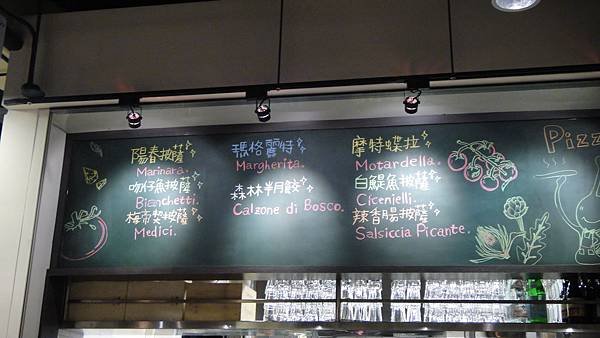 陽春披薩
Marinara.
吻仔魚披薩
Bianchetti.
梅帝契披薩
Medici.
瑪格麗特
Margherita.
森林半月餃
Calzone di Bosco.
摩特蝶拉
Motardella.
白鯷魚披薩
Cicenielli.
辣香腸披薩
Salsiccia Picante.